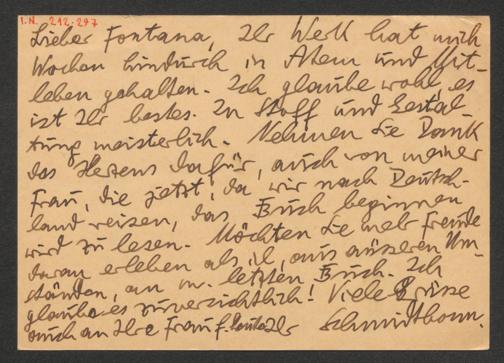 I.N. 212.297
Lieber Fontana, Ihr Werk hat mich
Wochen hindurch in Atem und Mit-
leben gehalten. Ich glaube wohl, es
ist Ihr bestes. In Stoff und Gestal-
tung meisterlich. Nehmen Sie Dank
des Herzens dafür, auch von meiner
Frau, die jetzt, da wir nach Deutsch-
land reisen, das Buch beginnen
wird zu lesen. Möchten Sie mehr Freude
daran erleben als ich, aus äusseren Um-
ständen, an m. letzten Buch. Ich
glaube es zuversichtlich! Viele Grüsse
auch an Ihre Frau Ihr Schmidtbonn.